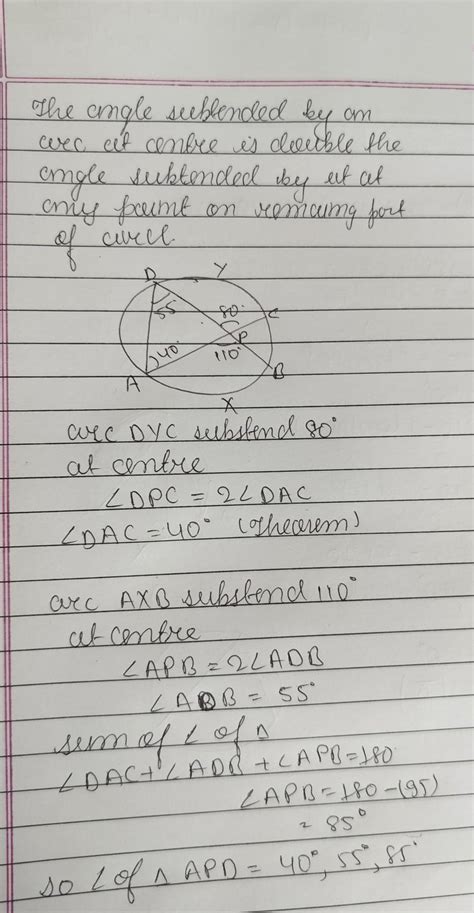 The angle subtended by an
arc at centre is double the
angle subtended by it at
any point on remaing part
of circle.
D
Y
55
80°
C
40°
P
110°
A
B
X
arc DYC substend 80°
at centre
∠DPC = 2∠DAC
∠DAC = 40° (Theorem)
arc AXB substend 110°
at centre
∠APB = 2∠ADB
∠ADB = 55°
sum of ∠ of △
∠DAC + ∠ADB + ∠APB = 180
∠APB = 180 - (95)
= 85°
so ∠ of △ APD = 40°, 55°, 85°